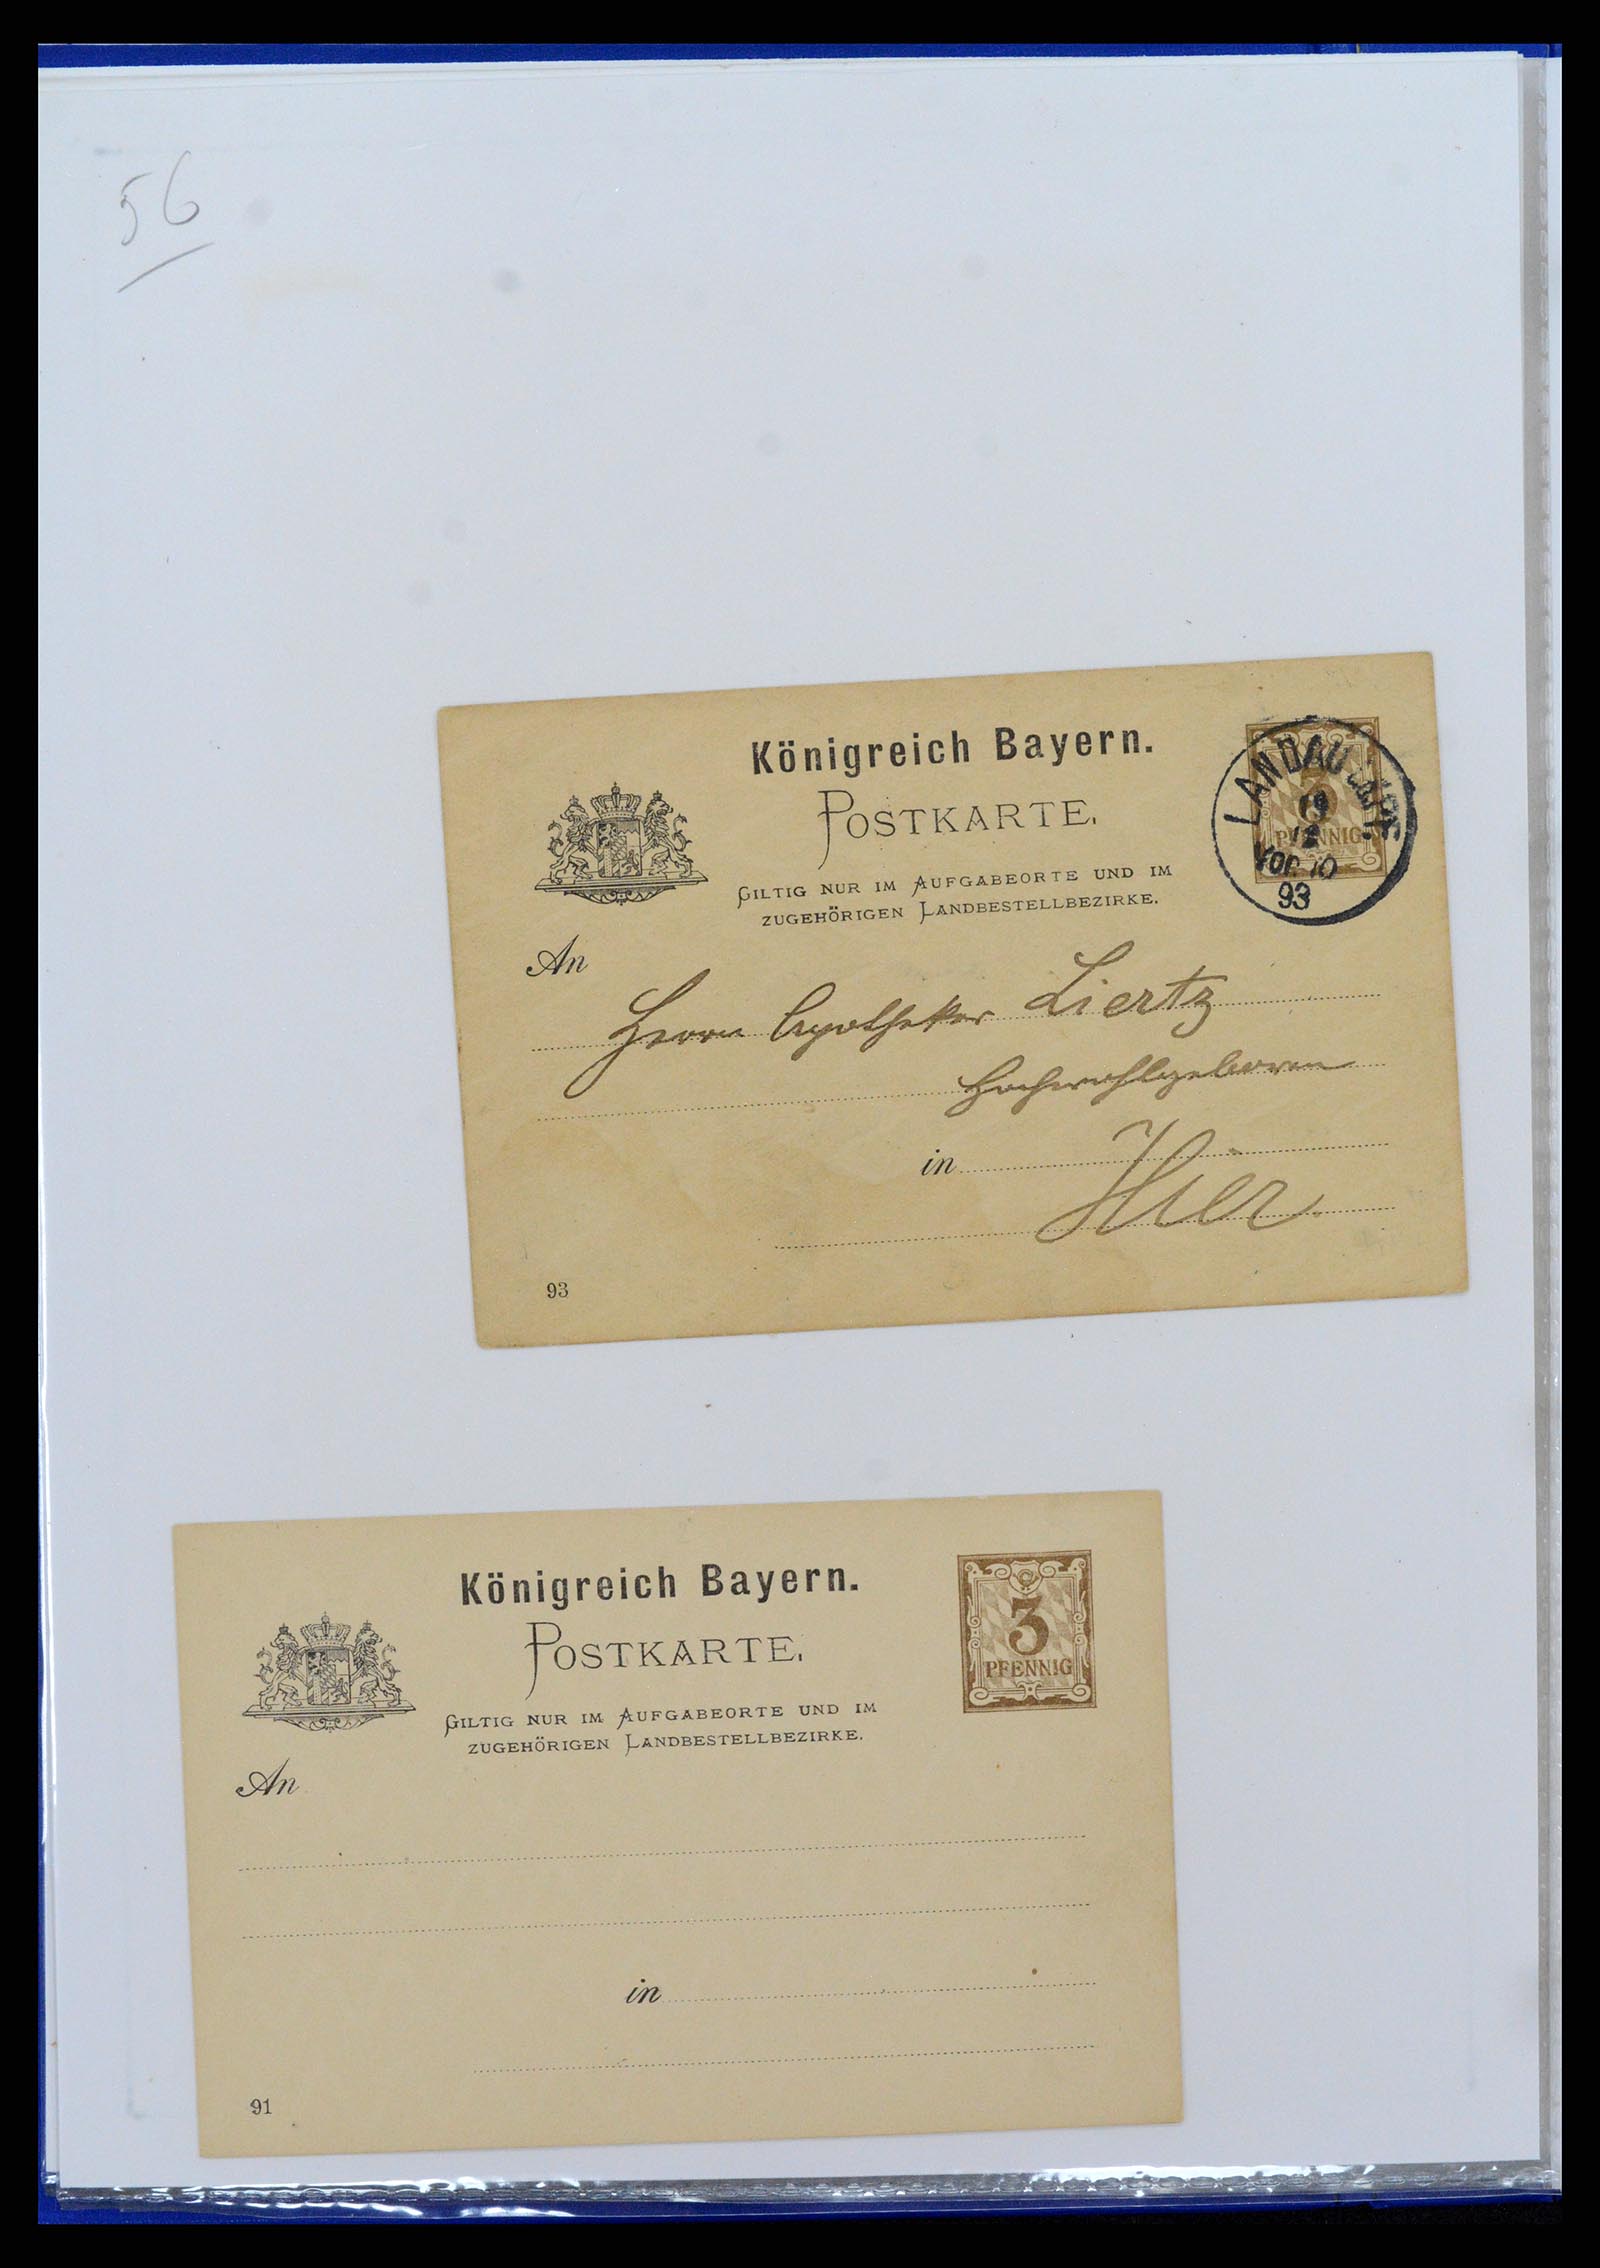 56
Königreich Bayern.
POSTKARTE.
GILTIG NUR IM AUFGABEORTE UND IM
ZUGEHÖRIGEN LANDBESTELLBEZIRKE.
LANDAU
19
12
VOR.10
93
PFENNIG
An
Herrn Apotheker Liertz
Hochwohlgeboren
in
Hier.
93
Königreich Bayern.
POSTKARTE.
GILTIG NUR IM AUFGABEORTE UND IM
ZUGEHÖRIGEN LANDBESTELLBEZIRKE.
3
PFENNIG
An
in
91